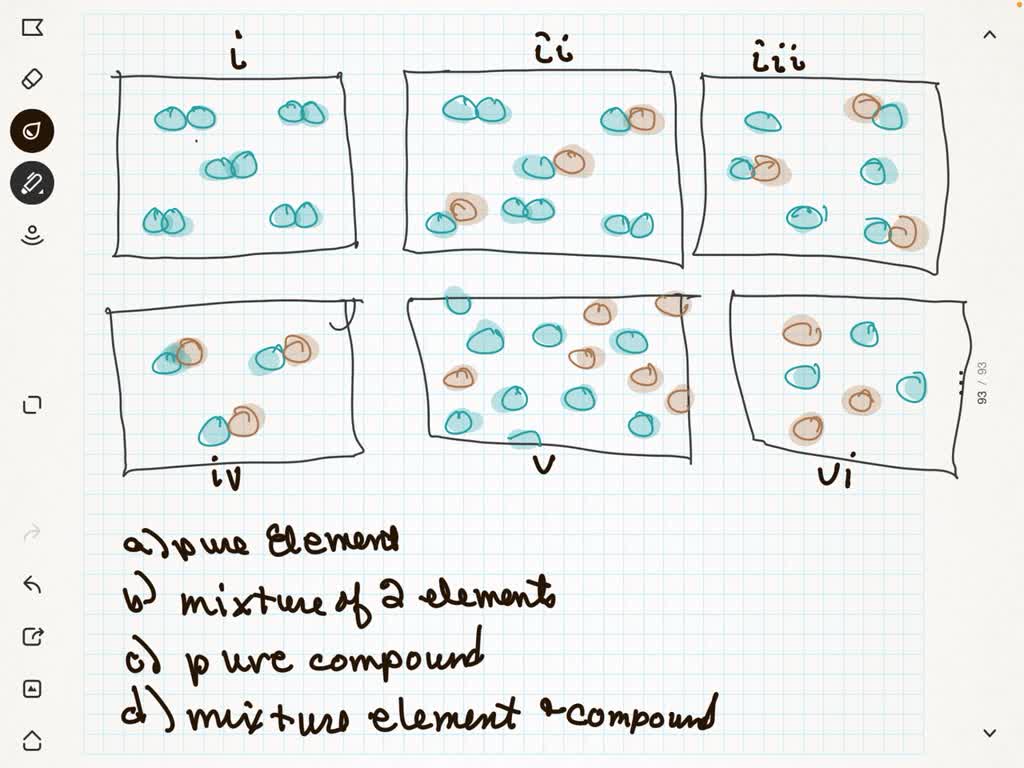 i
ii
iii
iv
v
vi
93 / 93
a) pure Element
b) mixture of 2 elements
c) pure compound
d) mixture element & compound